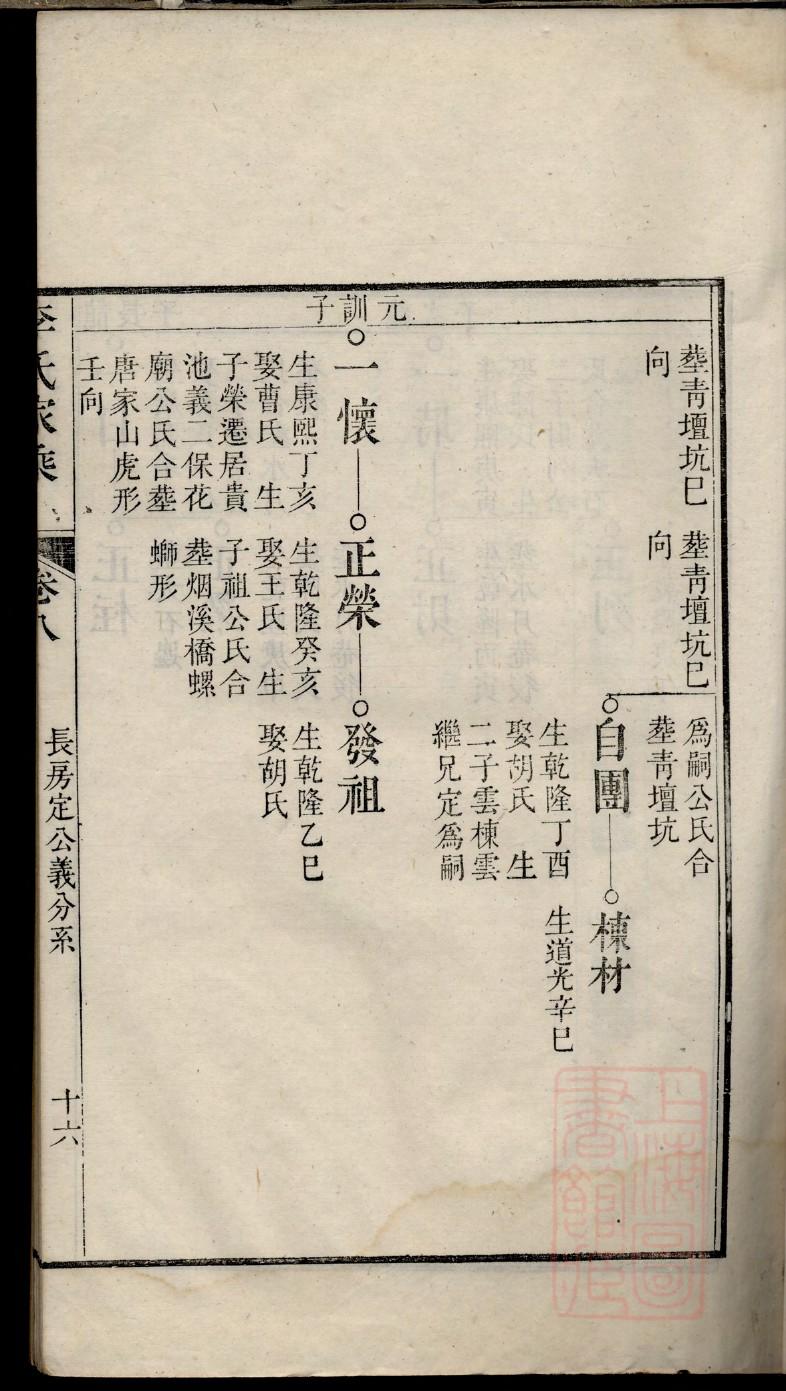 塟青壇坑巳
向
塟青壇坑巳
向
爲嗣公氏合
塟青壇坑
自團
生乾隆丁酉
娶胡氏 生
二子雲棟雲
繼兄定爲嗣
棟材
生道光辛巳
元訓子
一懷
生康熙丁亥
娶曹氏 生
子榮遷居貴
池義二保花
廟公氏合塟
唐家山虎形
壬向
正榮
生乾隆癸亥
娶王氏 生
子祖公氏合
塟烟溪橋螺
螄形
發祖
生乾隆乙巳
娶胡氏
李氏家乘
卷八
長房定公義分系
十六
上海圖書館藏